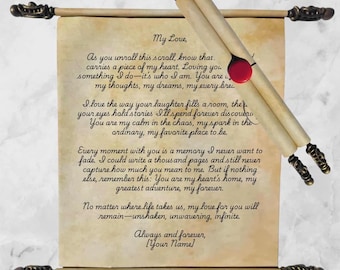 My Love,
As you unroll this scroll, know that
carries a piece of my heart. Loving you
something I do—it's who I am. You are
my thoughts, my dreams, my every bre
I love the way your laughter fills a room, the
your eyes hold stories I'll spend forever discover
You are my calm in the chaos, my spark in the
ordinary, my favorite place to be.
Every moment with you is a memory I never want to
fade. I could write a thousand pages and still never
capture how much you mean to me. But if nothing
else, remember this: You are my heart's home, my
greatest adventure, my forever.
No matter where life takes us, my love for you will
remain—unshaken, unwavering, infinite.
Always and forever,
[Your Name]